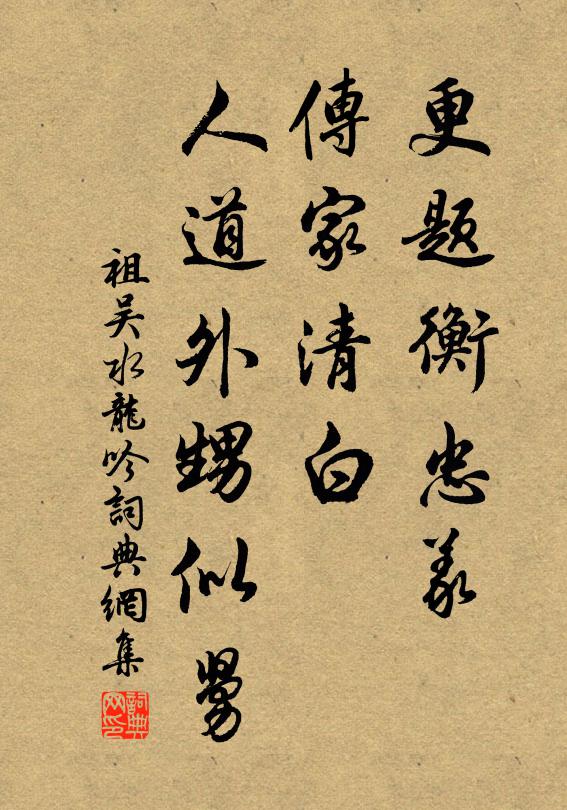 更题衡忠義
傳家清白
人道外甥似舅
祖吴水龍吟詞典網集
詞典网印